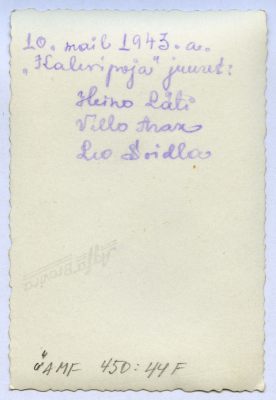 10. mail 1943. a.
„Kalevipoja" juures:
Heino Läti
Villo Arax
Leo Soidla
AMF 450:44 F